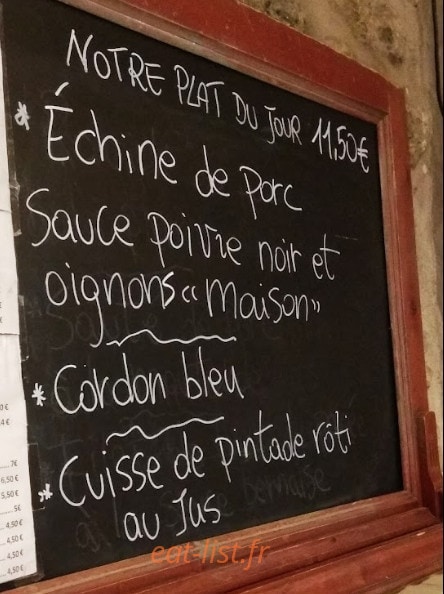 NOTRE PLAT DU JOUR 11,50€
* Échine de porc
Sauce poivre noir et
oignons «maison»
* Cordon bleu
* Cuisse de pintade rôti
au Jus
eat-list.fr
0€
4€
7€
6,50€
5,50€
5€
4,50€
4,50€
4,50€
4,50€